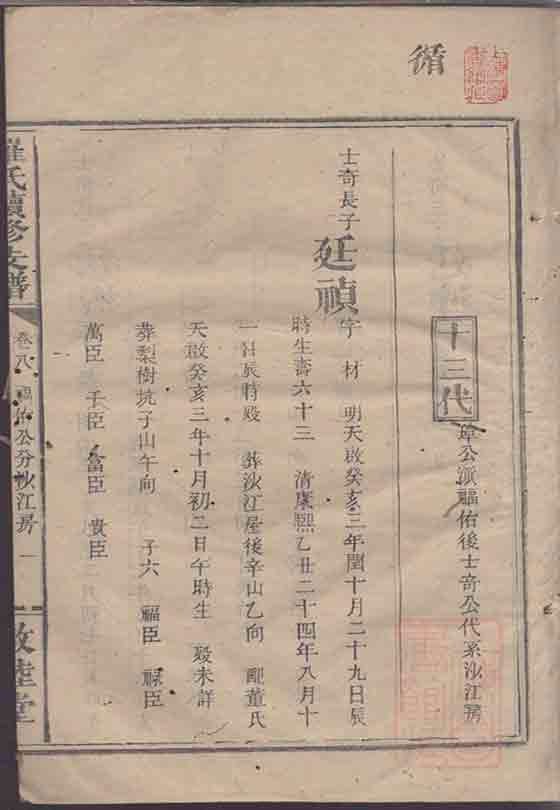 循
十三代
章公派福佑後士奇公代系沙江房
士奇長子
廷禎
字 材 明天啟癸亥三年閏十月二十九日辰
時生壽六十三 清康熙乙丑二十四年八月十
一日辰時歿 葬沙江屋後辛山乙向 配董氏
天啟癸亥三年十月初二日午時生 歿未詳
葬梨樹坑子山午向 子六 福臣 祿臣
萬臣 千臣 富臣 貴臣
羅氏續修支譜
卷八 福佑公分沙江房 一
敦睦堂